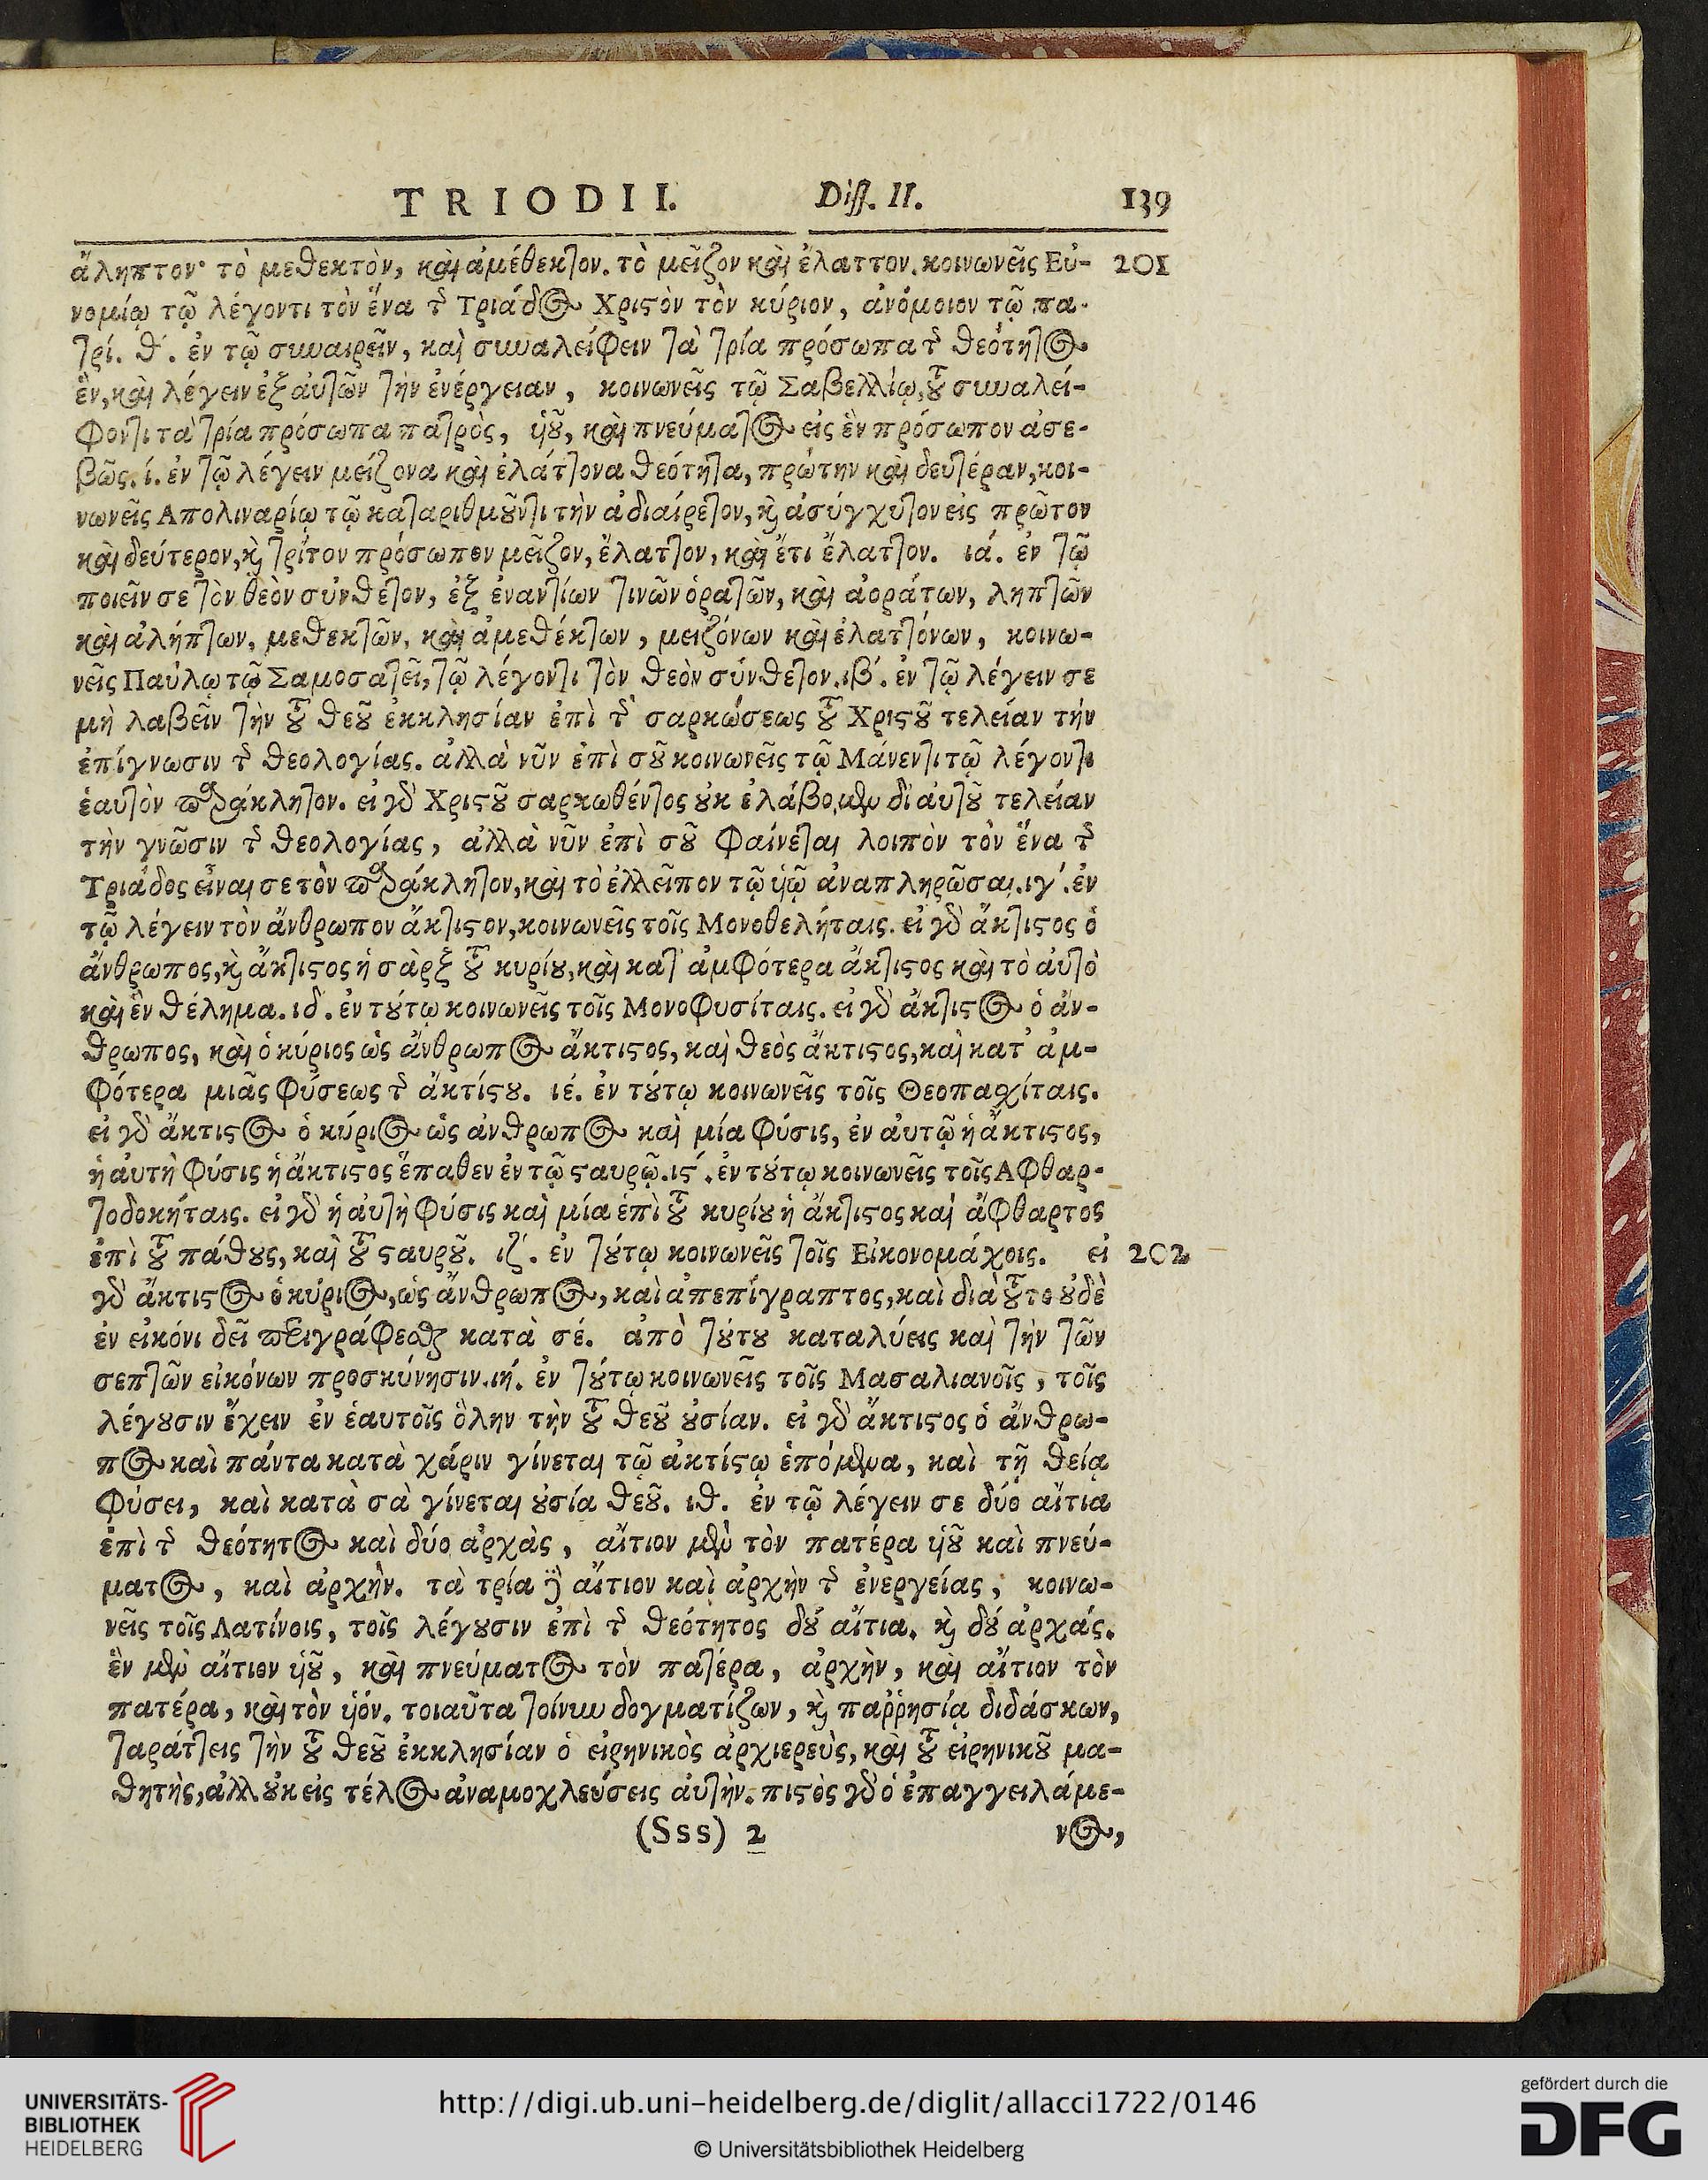 TRIODII. Diss. II. 139
ἄληπτον· τὸ μεθεκτὸν, καὶ ἀμέθεκτον. τὸ μεῖζον καὶ ἔλαττον. κοινωνεῖς Εὐ- 201
νομίῳ τῷ λέγοντι τὸν ἕνα τῆς Τριάδος Χριστὸν τὸν κύριον, ἀνόμοιον τῷ πα-
τρί. θ´. ἐν τῷ συναιρεῖν, καὶ συναλείφειν τὰ τρία πρόσωπα τῆς θεότητος
ἓν, καὶ λέγειν ἐξ αὐτῶν τὴν ἐνέργειαν, κοινωνεῖς τῷ Σαβελλίῳ, τοῦ συναλεί-
φοντι τὰ τρία πρόσωπα πατρὸς, ὑοῦ, καὶ πνεύματος εἰς ἓν πρόσωπον ἀσε-
βῶς. ί. ἐν τῷ λέγειν μείζονα καὶ ἐλάττονα θεότητα, πρώτην καὶ δευτέραν, κοι-
νωνεῖς Απολιναρίῳ τῷ καταριθμοῦντι τὴν ἀδιαίρετον, καὶ ἀσύγχυτον εἰς πρῶτον
καὶ δεύτερον, καὶ τρίτον πρόσωπον μεῖζον, ἔλαττον, καὶ ἔτι ἔλαττον. ιά. ἐν τῷ
ποιεῖν σε τὸν θεὸν σύνθετον, ἐξ ἐναντίων τινῶν ὁρατῶν, καὶ ἀοράτων, ληπτῶν
καὶ ἀλήπτων, μεθεκτῶν, καὶ ἀμεθέκτων, μειζόνων καὶ ἐλαττόνων, κοινω-
νεῖς Παύλῳ τῷ Σαμοσατεῖ, τῷ λέγοντι τὸν θεὸν σύνθετον. ιβ´. ἐν τῷ λέγειν σε
μὴ λαβεῖν τὴν τοῦ θεοῦ ἐκκλησίαν ἐπὶ τῆς σαρκώσεως τοῦ Χριστοῦ τελείαν τὴν
ἐπίγνωσιν τῆς θεολογίας. ἀλλὰ νῦν ἐπὶ σοῦ κοινωνεῖς τῷ Μάνεντι τῷ λέγοντι
ἑαυτὸν παράκλητον. εἰ γὰρ Χριστοῦ σαρκωθέντος οὐκ ἐλάβομεν δι' αὐτοῦ τελείαν
τὴν γνῶσιν τῆς θεολογίας, ἀλλὰ νῦν ἐπὶ σοῦ φαίνεται λοιπὸν τὸν ἕνα τῆς
Τριάδος εἶναι σε τὸν παράκλητον, καὶ τὸ ἐλλεῖπον τῷ ὑῷ ἀναπληρῶσαι. ιγ´. ἐν
τῷ λέγειν τὸν ἄνθρωπον ἄκτιστον, κοινωνεῖς τοῖς Μονοθελήταις. εἰ γὰρ ἄκτιστος ὁ
ἄνθρωπος, καὶ ἄκτιστος ἡ σὰρξ τοῦ κυρίου, καὶ κατ' ἀμφότερα ἄκτιστος καὶ τὸ αὐτὸ
καὶ ἓν θέλημα. ιδ´. ἐν τούτῳ κοινωνεῖς τοῖς Μονοφυσίταις. εἰ γὰρ ἄκτιστος ὁ ἄν-
θρωπος, καὶ ὁ κύριος ὡς ἄνθρωπος ἄκτιστος, καὶ θεὸς ἄκτιστος, καὶ κατ' ἀμ-
φότερα μιᾶς φύσεως τῆς ἀκτίστου. ιέ. ἐν τούτῳ κοινωνεῖς τοῖς Θεοπασχίταις.
εἰ γὰρ ἄκτιστος ὁ κύριος ὡς ἄνθρωπος καὶ μία φύσις, ἐν αὐτῷ ἡ ἄκτιστος,
ἡ αὐτὴ φύσις ἡ ἄκτιστος ἔπαθεν ἐν τῷ σταυρῷ. ις´. ἐν τούτῳ κοινωνεῖς τοῖς Αφθαρ-
τοδοκήταις. εἰ γὰρ ἡ αὐτὴ φύσις καὶ μία ἐπὶ τοῦ κυρίου ἡ ἄκτιστος καὶ ἄφθαρτος
ἐπὶ τοῦ πάθους, καὶ τοῦ σταυροῦ. ιζ´. ἐν τούτῳ κοινωνεῖς τοῖς Εἰκονομάχοις. εἰ 202
γὰρ ἄκτιστος ὁ κύριος, ὡς ἄνθρωπος, καὶ ἀπεπίγραπτος, καὶ διὰ τοῦτο οὐδὲ
ἐν εἰκόνι δεῖ περιγράφεσθαι κατὰ σέ. ἀπὸ τούτου καταλύεις καὶ τὴν τῶν
σεπτῶν εἰκόνων προσκύνησιν. ιή. ἐν τούτῳ κοινωνεῖς τοῖς Μασαλιανοῖς, τοῖς
λέγουσιν ἔχειν ἐν ἑαυτοῖς ὅλην τὴν τοῦ θεοῦ οὐσίαν. εἰ γὰρ ἄκτιστος ὁ ἄνθρω-
πος καὶ πάντα κατὰ χάριν γίνεται τῷ ἀκτίστῳ ἑπόμενα, καὶ τῇ θείᾳ
φύσει, καὶ κατὰ σὰ γίνεται οὐσία θεοῦ. ιθ. ἐν τῷ λέγειν σε δύο αἴτια
ἐπὶ τῆς θεότητος καὶ δύο ἀρχὰς, αἴτιον μὲν τὸν πατέρα ὑοῦ καὶ πνεύ-
ματος, καὶ ἀρχὴν. τὰ τρία δὲ αἴτιον καὶ ἀρχὴν τῆς ἐνεργείας, κοινω-
νεῖς τοῖς Λατίνοις, τοῖς λέγουσιν ἐπὶ τῆς θεότητος δύο αἴτια. καὶ δύο ἀρχάς.
ἓν μὲν αἴτιον ὑοῦ, καὶ πνεύματος τὸν πατέρα, ἀρχὴν, καὶ αἴτιον τὸν
πατέρα, καὶ τὸν ὑόν. τοιαῦτα τοίνυν δογματίζων, καὶ παῤῥησίᾳ διδάσκων,
ταράττεις τὴν τοῦ θεοῦ ἐκκλησίαν ὁ εἰρηνικὸς ἀρχιερεὺς, καὶ τοῦ εἰρηνικοῦ μα-
θητὴς, ἀλλ' οὐκ εἰς τέλος ἀναμοχλεύσεις αὐτὴν. πιστὸς γὰρ ὁ ἐπαγγειλάμε-
(Sss) 2 νος,
UNIVERSITÄTS-
BIBLIOTHEK
HEIDELBERG
http://digi.ub.uni-heidelberg.de/diglit/allacci1722/0146
© Universitätsbibliothek Heidelberg
gefördert durch die
DFG